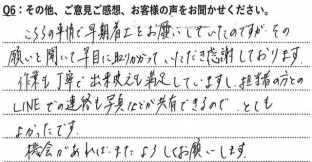 Q6：その他、ご意見ご感想、お客様の声をお聞かせください。
こちらの事情で早期着工とお願いしていたのですが、その
願いを聞いて早目に取りかかって いただき感謝しております。
作業も丁寧で出来映えも満足していますし、担当者の方との
LINEでの連絡も写真などが共有できるので、とても
よかったです。
機会があれば、また よろしくお願いします。